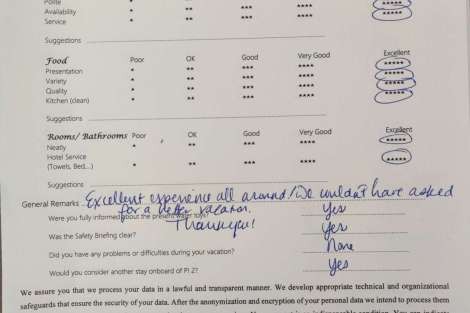 Polite * ** *** **** *****
Availability * ** *** **** *****
Service * ** *** **** *****
Suggestions
Food Poor OK Good Very Good Excellent
Presentation * ** *** **** *****
Variety * ** *** **** *****
Quality * ** *** **** *****
Kitchen (clean) * ** *** **** *****
Suggestions
Rooms/ Bathrooms Poor OK Good Very Good Excellent
Neatly * ** *** **** *****
Hotel Service
(Towels, Bed,...) * ** *** **** *****
Suggestions
General Remarks Excellent experience all around! We wouldn't have asked
for a better vacation.
Were you fully informed about the present water toys? Yes
Thank you!
Was the Safety Briefing clear? Yes
Did you have any problems or difficulties during your vacation? None
Would you consider another stay onboard of PI 2? Yes
We assure you that we process your data in a lawful and transparent manner. We develop appropriate technical and organizational
safeguards that ensure the security of your data. After the anonymization and encryption of your personal data we intend to process them